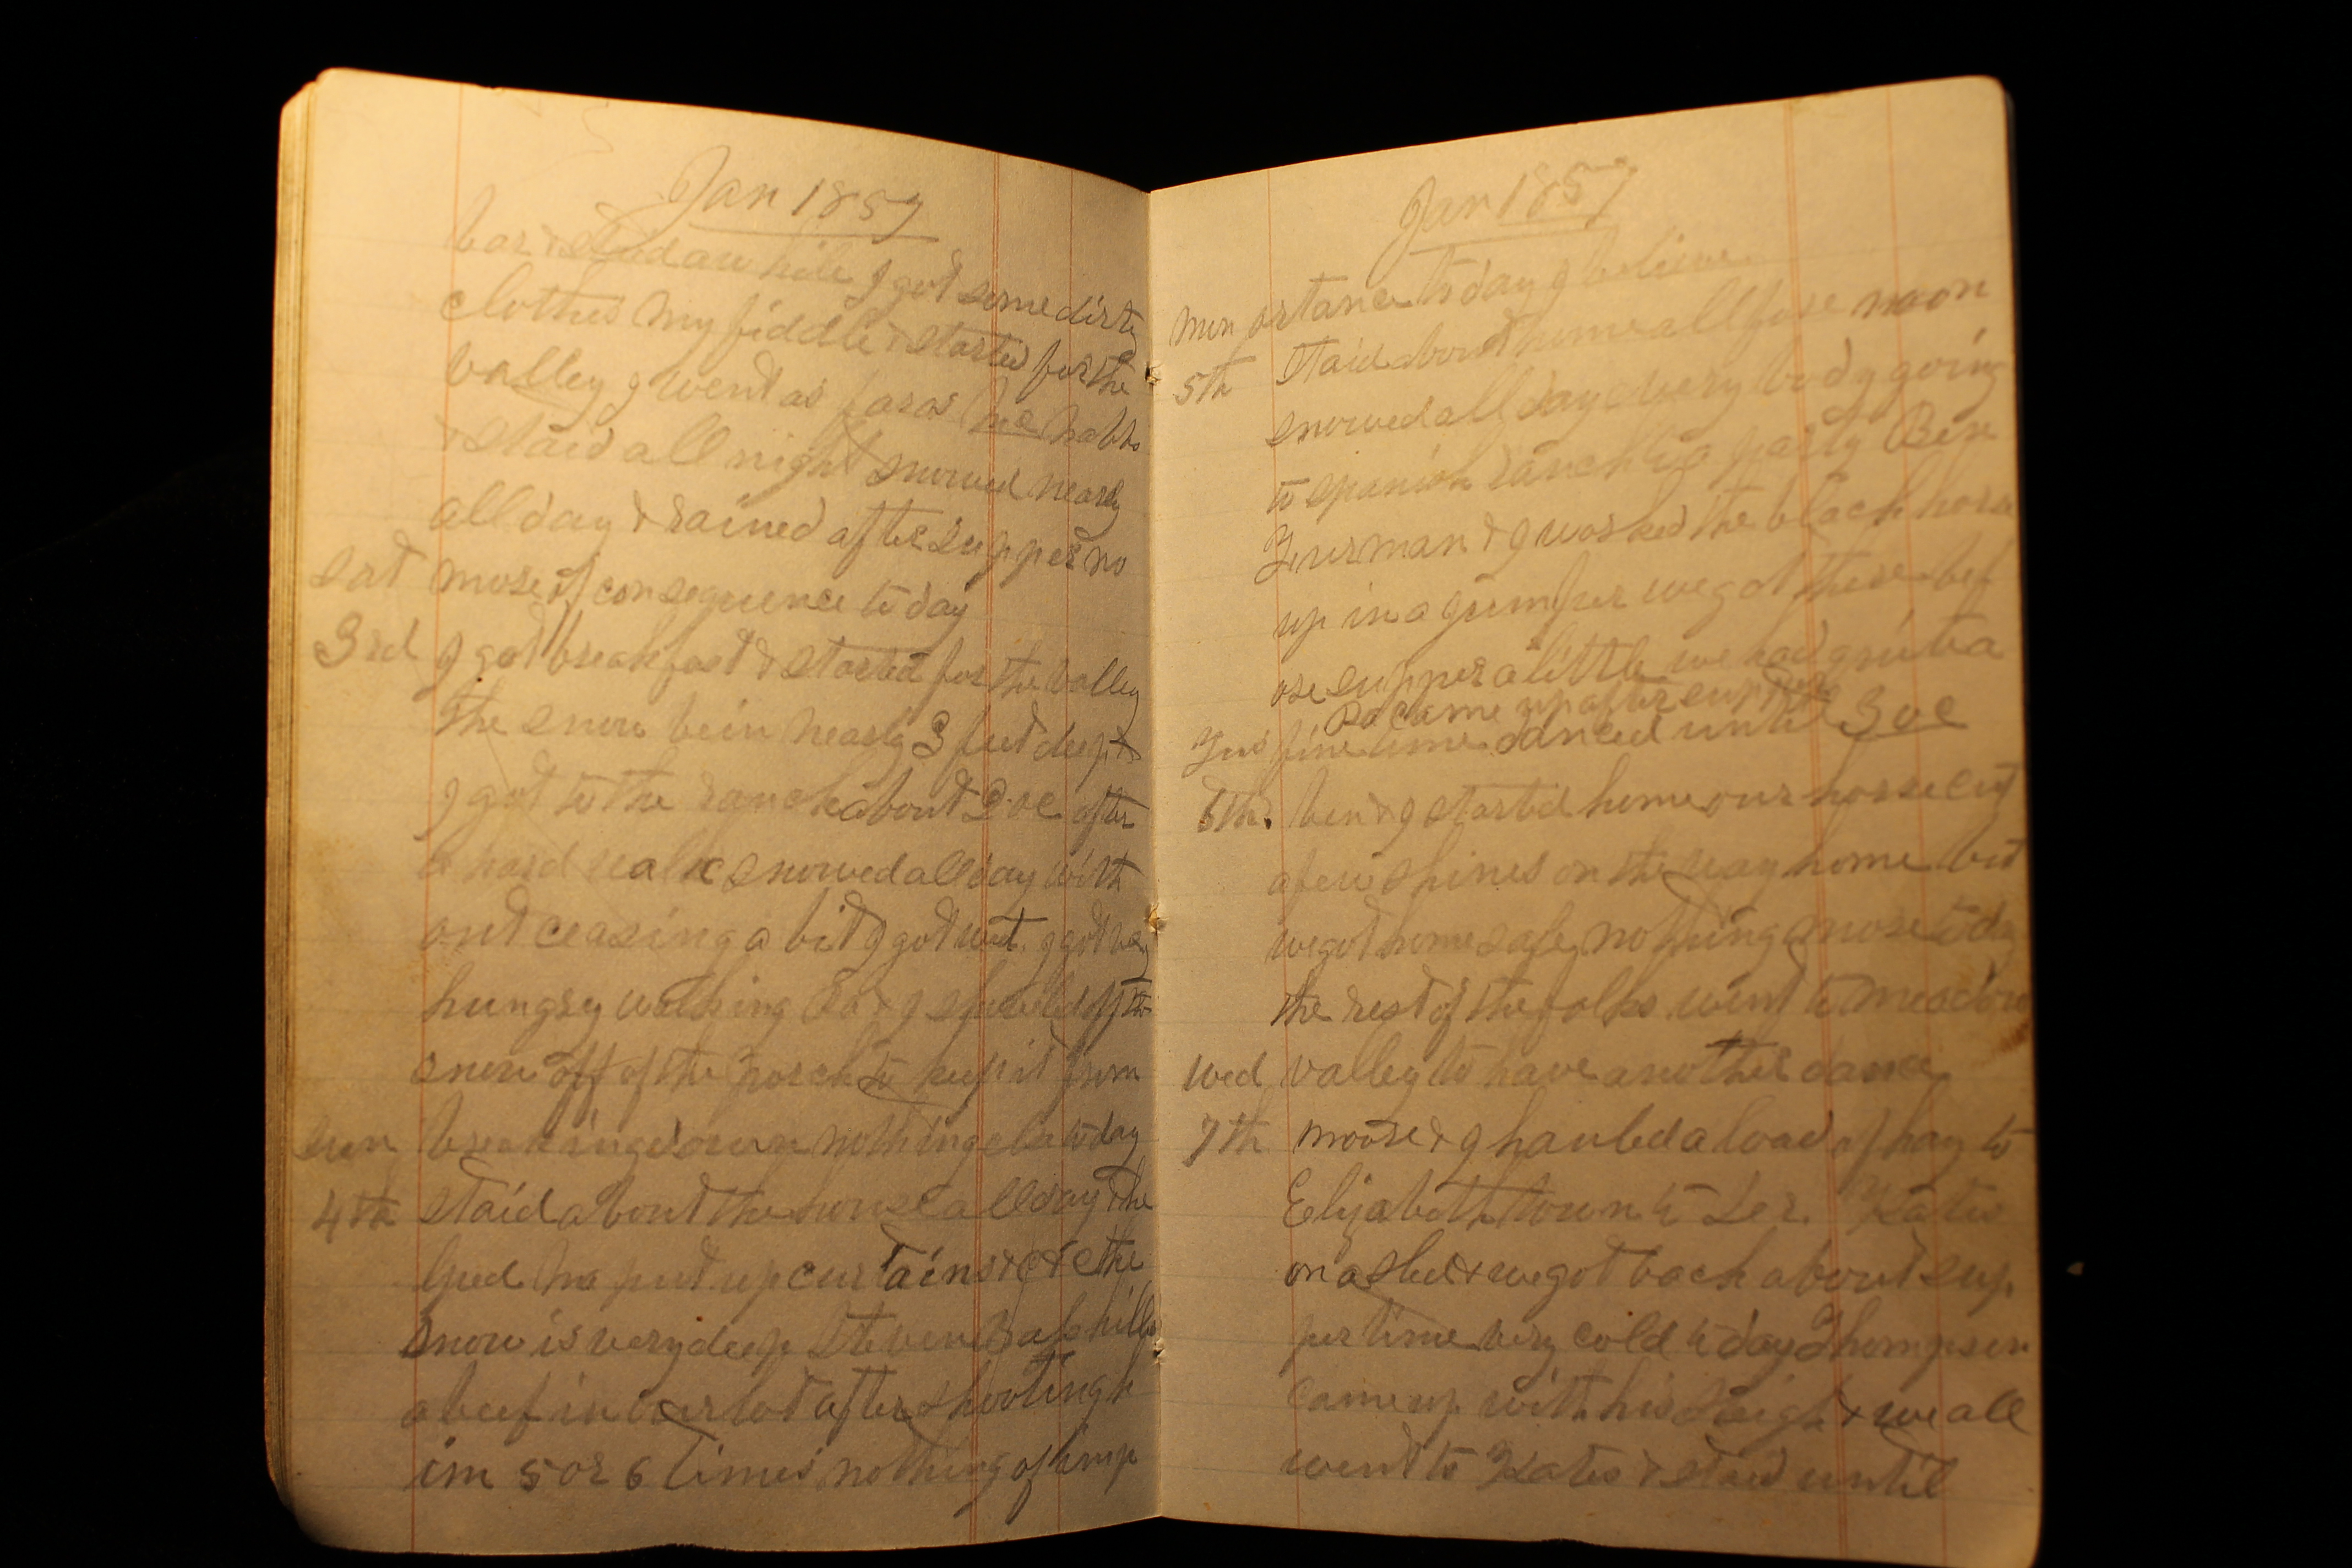 Jan 1857
bar & staid awhile I got some dirty
clothes my fiddle & started for the
valley I went as far as
& staid all night snowed nearly
all day & rained after supper no
sat more of consequence to day
3rd I got breakfast & started for the valley
the snow bein nearly 3 feet deep &
I got to the ranch about 2 oc after
a hard walk snowed all day with
out ceasing a bit I got wet I got very
hungry walking & I shoveld off the
snow off of the porch to keep it from
Sun breaking down nothing else to day
4th staid about the house all day & he
lped put up curtains & c & c the
snow is very deep Steven & kill
a beef in our lot after shooting h
im 5 or 6 times nothing of imp
Jan 1857
Mon ortance to day I believe
5th staid about home all fore noon
snowed all day every body going
to spanish ranch to a party Ben
& I worked the black horse
up in a we got there bef
ore supper a little we had quite a
Pa came up after supper
Tus fine time danced until 3 oc
6th. ben & I started home our horse cut
a few shines on the way home but
we got home safe nothing more to day
the rest of the folks went to meadow
Wed valley to have another dance
7th moose & I hauled a load of hay to
Elizabeth town to Kates
on a sled & we got back about sup
per time very cold to day Thompson
came up with his sleigh & we all
went to Kates & staid until